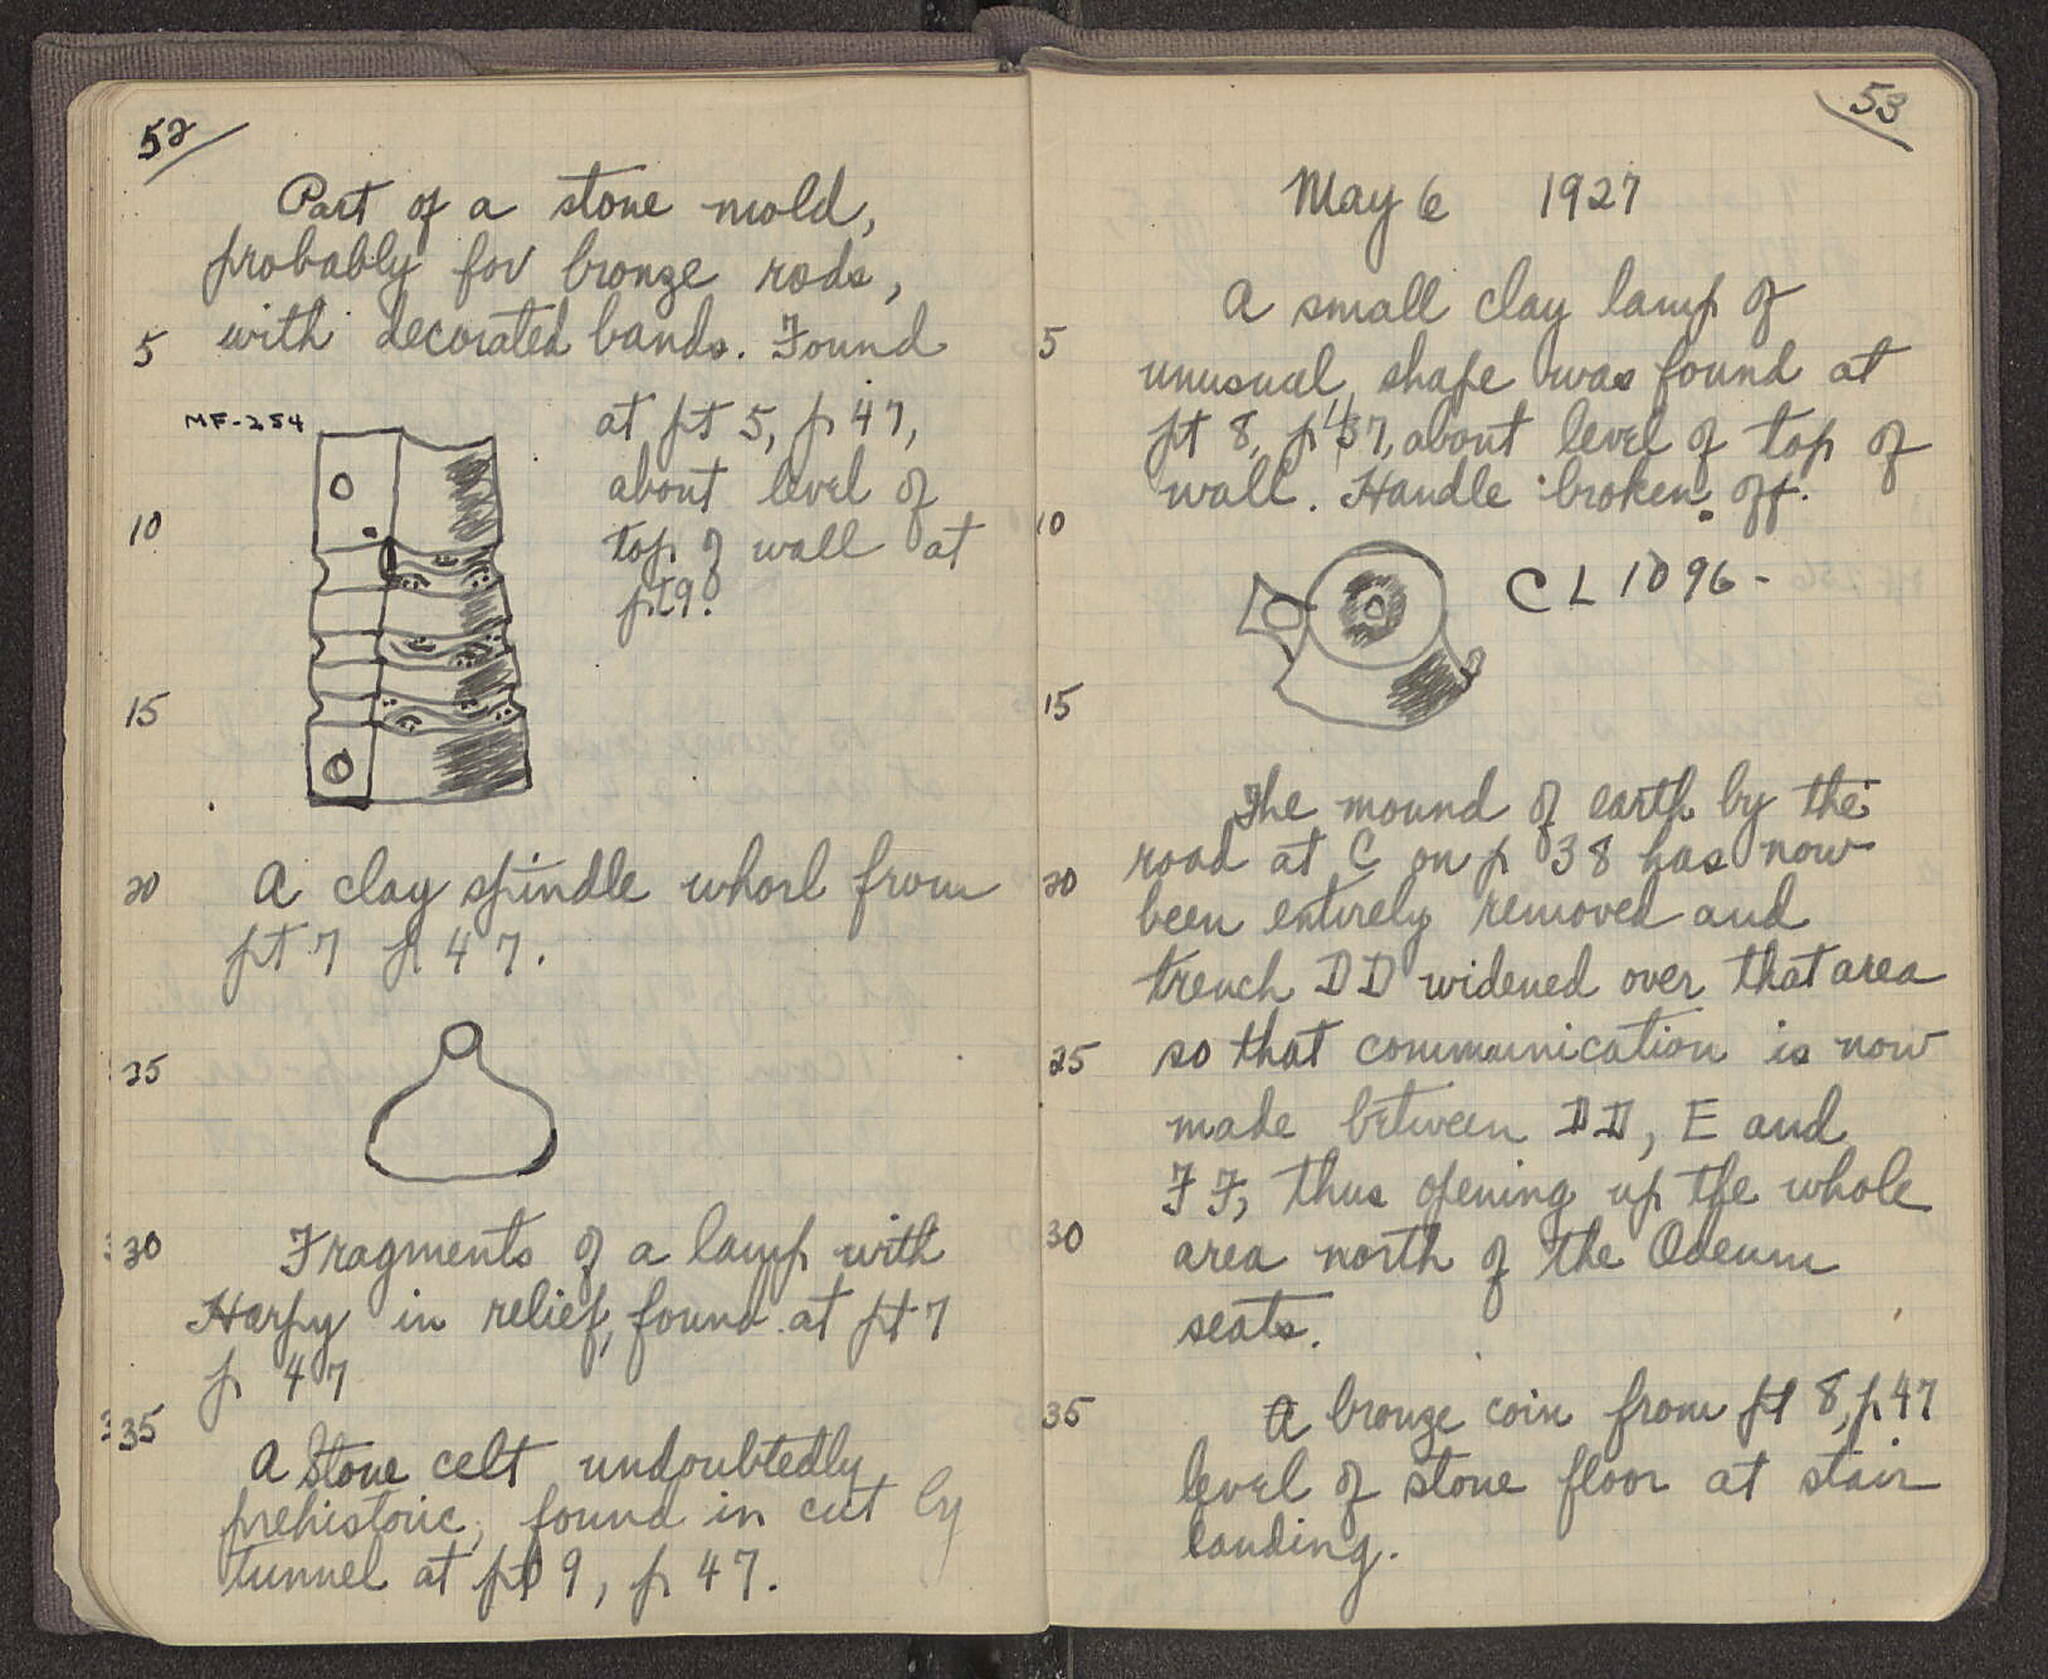 52
Part of a stone mold,
probably for bronze rods,
5 with decorated bands. Found
MF-254
at pt 5, p 47,
about level of
10 top of wall at
pt 9.
15
20 A clay spindle whorl from
pt 7 p 47.
25
30 Fragments of a lamp with
Harpy in relief, found at pt 7
p 47
35
A stone celt undoubtedly
prehistoric, found in cut by
tunnel at pt 9, p 47.
53
May 6 1927
A small clay lamp of
5
unusual shape was found at
pt 8, p 47, about level of top of
wall. Handle broken off.
10
CL 1096-
15
The mound of earth by the
road at C on p 38 has now
20
been entirely removed and
trench DD widened over that area
25 so that communication is now
made between DD, E and
FF, thus opening up the whole
30 area north of the Odeum
seats.
35 A bronze coin from pt 8, p 47
level of stone floor at stair
landing.